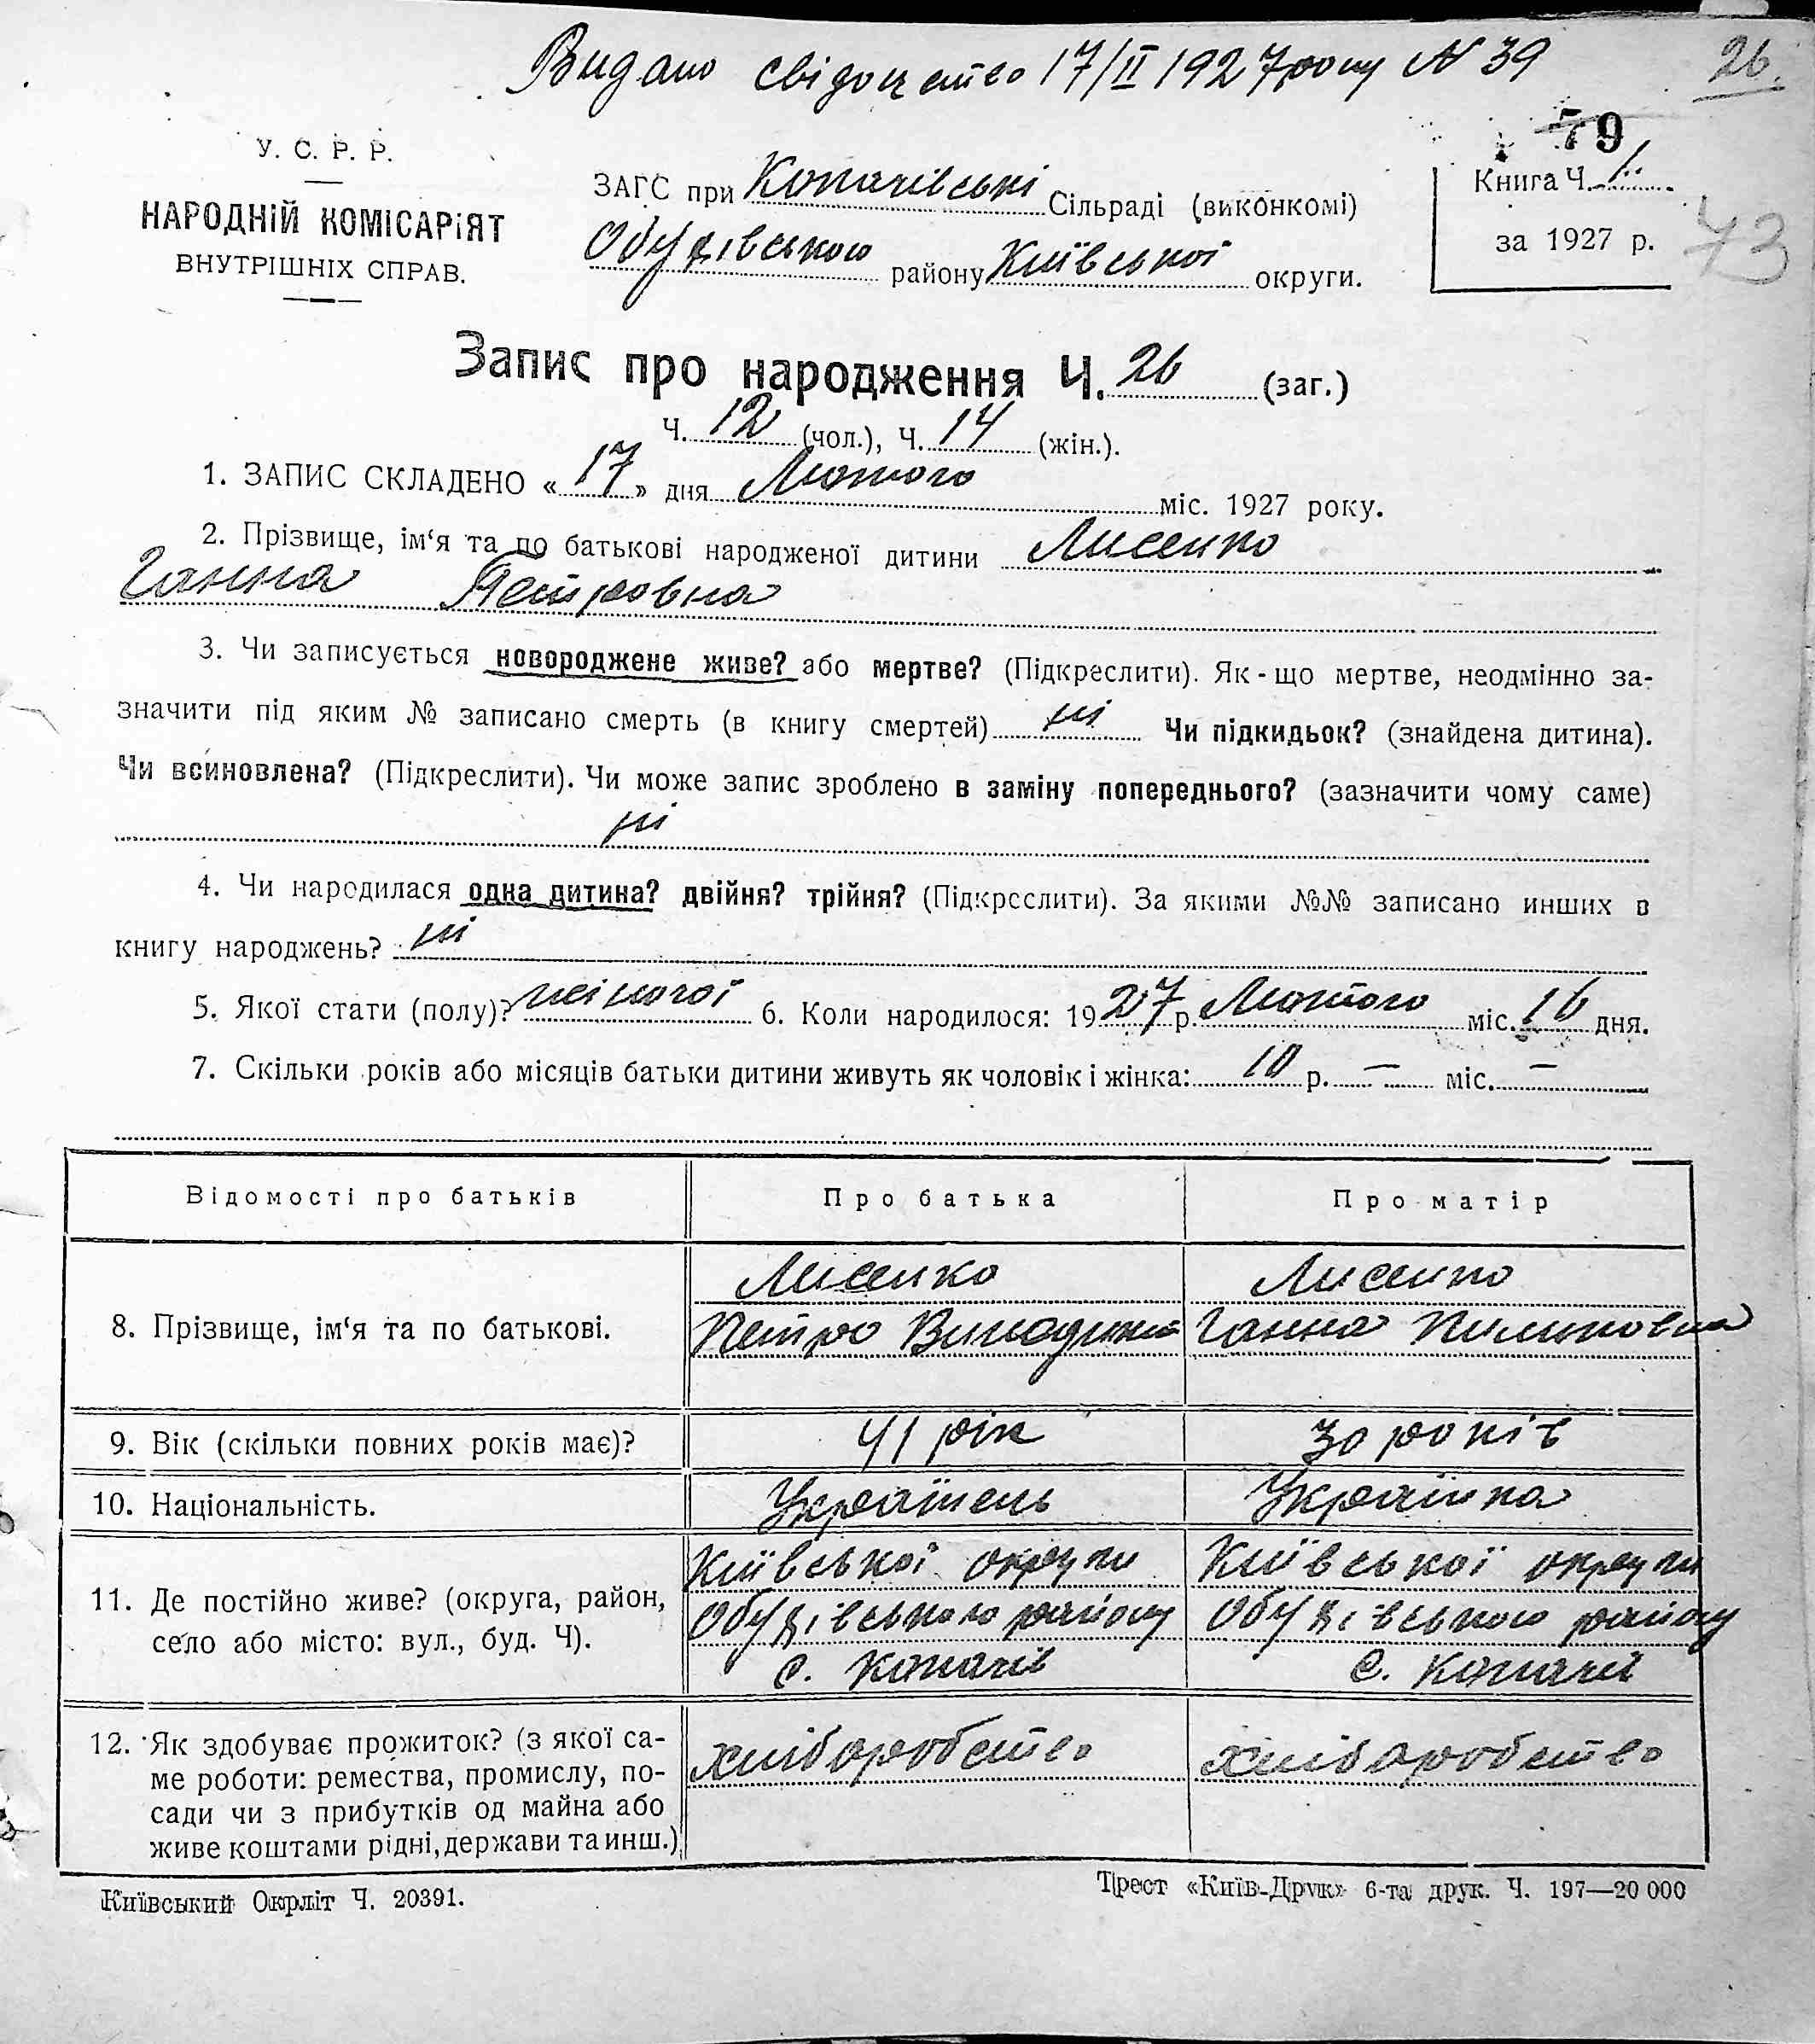 Видано свідоцтво 17/II 1927 року N 39
26.
79
У. С. Р. Р.
НАРОДНІЙ КОМІСАРІЯТ
ВНУТРІШНІХ СПРАВ.
ЗАГС при Копачівські Сільраді (виконкомі)
Обухівського району Київської округи.
Книга Ч. 1
за 1927 р.
43
Запис про народження Ч. 26 (заг.)
Ч. 12 (чол.), Ч. 14 (жін.).
1. ЗАПИС СКЛАДЕНО « 17 » дня Лютого міс. 1927 року.
2. Прізвище, ім‘я та по батькові народженої дитини Лисенко
Ганна Петровна
3. Чи записується новороджене живе? або мертве? (Підкреслити). Як-що мертве, неодмінно за-
значити під яким № записано смерть (в книгу смертей) ні Чи підкидьок? (знайдена дитина).
Чи всиновлена? (Підкреслити). Чи може запис зроблено в заміну попереднього? (зазначити чому саме)
ні
4. Чи народилася одна дитина? двійня? трійня? (Підкреслити). За якими №№ записано инших в
книгу народжень? ні
5. Якої стати (полу)? жіночої 6. Коли народилося: 1927 р. Лютого міс. 16 дня.
7. Скільки років або місяців батьки дитини живуть як чоловік і жінка: 10 р. — міс. —
Відомості про батьків Про батька Про матір
8. Прізвище, ім‘я та по батькові. Лисенко Лисенко
Петро Ганна Пилиповна
9. Вік (скільки повних років має)? 41 рік 30 років
10. Національність. Українець Українка
11. Де постійно живе? (округа, район, село або місто: вул., буд. Ч). Київської округи Київської округи
Обухівського району Обухівського району
с. Копачів с. Копачів
12. Як здобуває прожиток? (з якої са-
ме роботи: ремества, промислу, по-
сади чи з прибутків од майна або
живе коштами рідні, держави та инш.) хліборобство хліборобство
Київський Окрліт Ч. 20391.
Трест «Київ-Друк» 6-та друк. Ч. 197—20 000